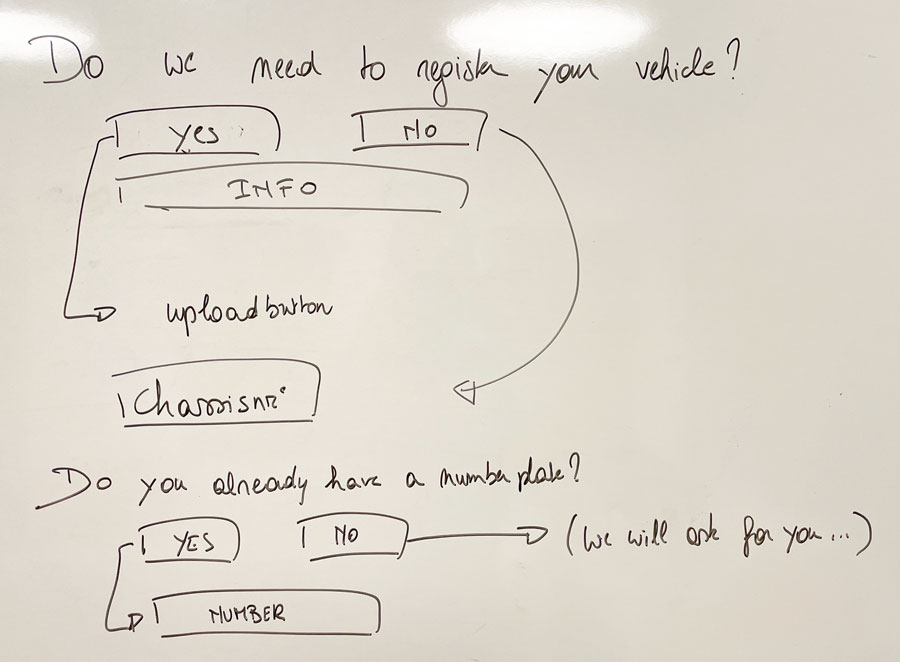 Do we need to register your vehicle?
Yes No
INFO
upload button
Chassisnr°
Do you already have a number plate?
YES NO (we will ask for you...)
NUMBER